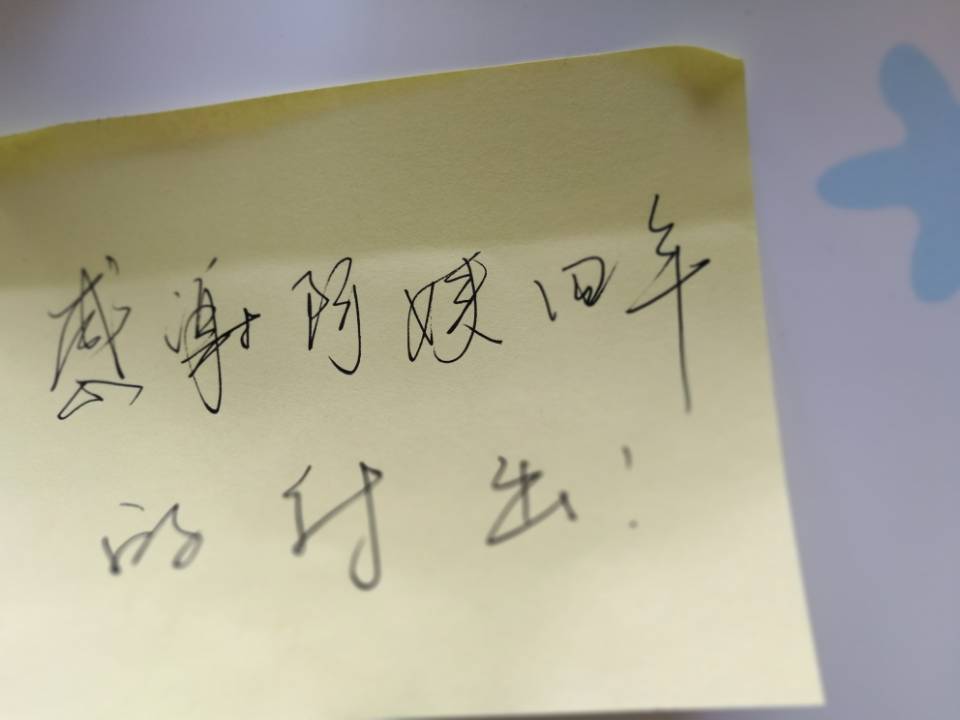 感谢阿姨四年
的付出!